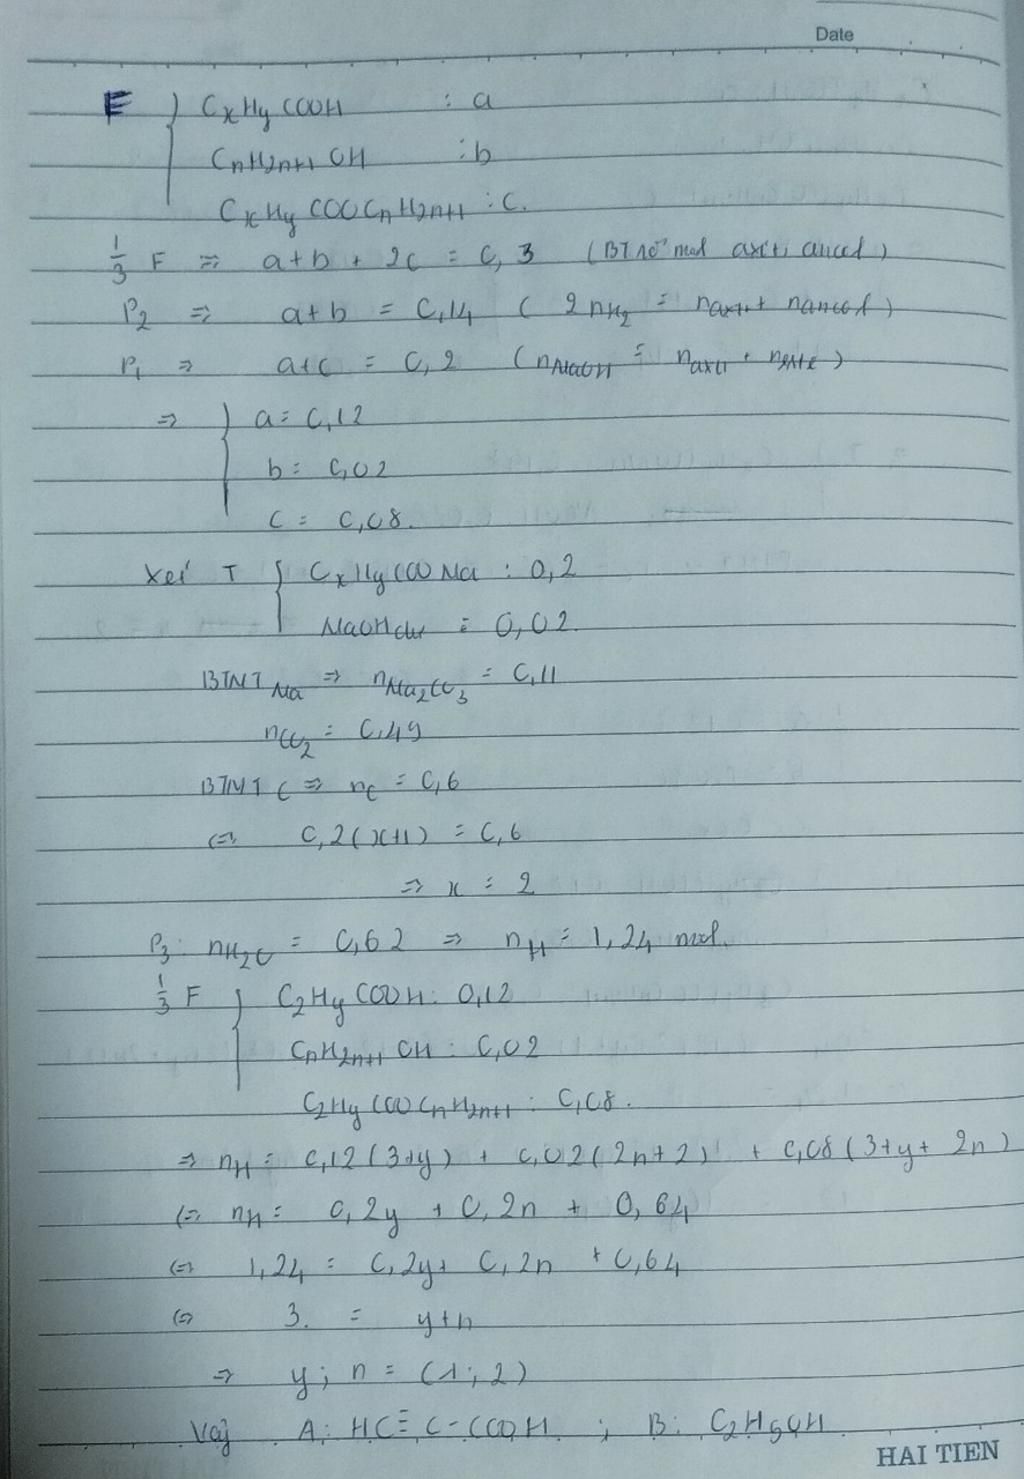 Date
F { CxHy COOH : a
CnH2n+1 OH : b
CxHy COO CnH2n+1 : c.
1/3 F => a+b + 2c = 0,3 (BT nmol axit, ancol)
P2 => a+b = 0,14 (2nH2 = naxit + nancol)
P1 => a+c = 0,2 (nNaOH = naxit + neste)
=> { a = 0,12
b = 0,02
c = 0,08.
Xét T { CxHyCOONa : 0,2
NaOH dư = 0,02
BTNT Na => nNa2CO3 = 0,11
nCO2 = 0,49
BTNT C => nC = 0,6
<=> 0,2(x+1) = 0,6
=> x = 2
P3: nH2O = 0,62 => nH = 1,24 mol.
1/3 F { C2Hy COOH: 0,12
CnH2n+1 OH : 0,02
C2Hy COO CnH2n+1 : 0,08.
=> nH = 0,12(3+y) + 0,02(2n+2) + 0,08(3+y+2n)
<=> nH = 0,2y + 0,2n + 0,64
<=> 1,24 = 0,2y + 0,2n + 0,64
<=> 3. = y+n
=> y; n = (1; 2)
Vậy A: HC≡C-COOH ; B: C2H5OH
HAI TIEN